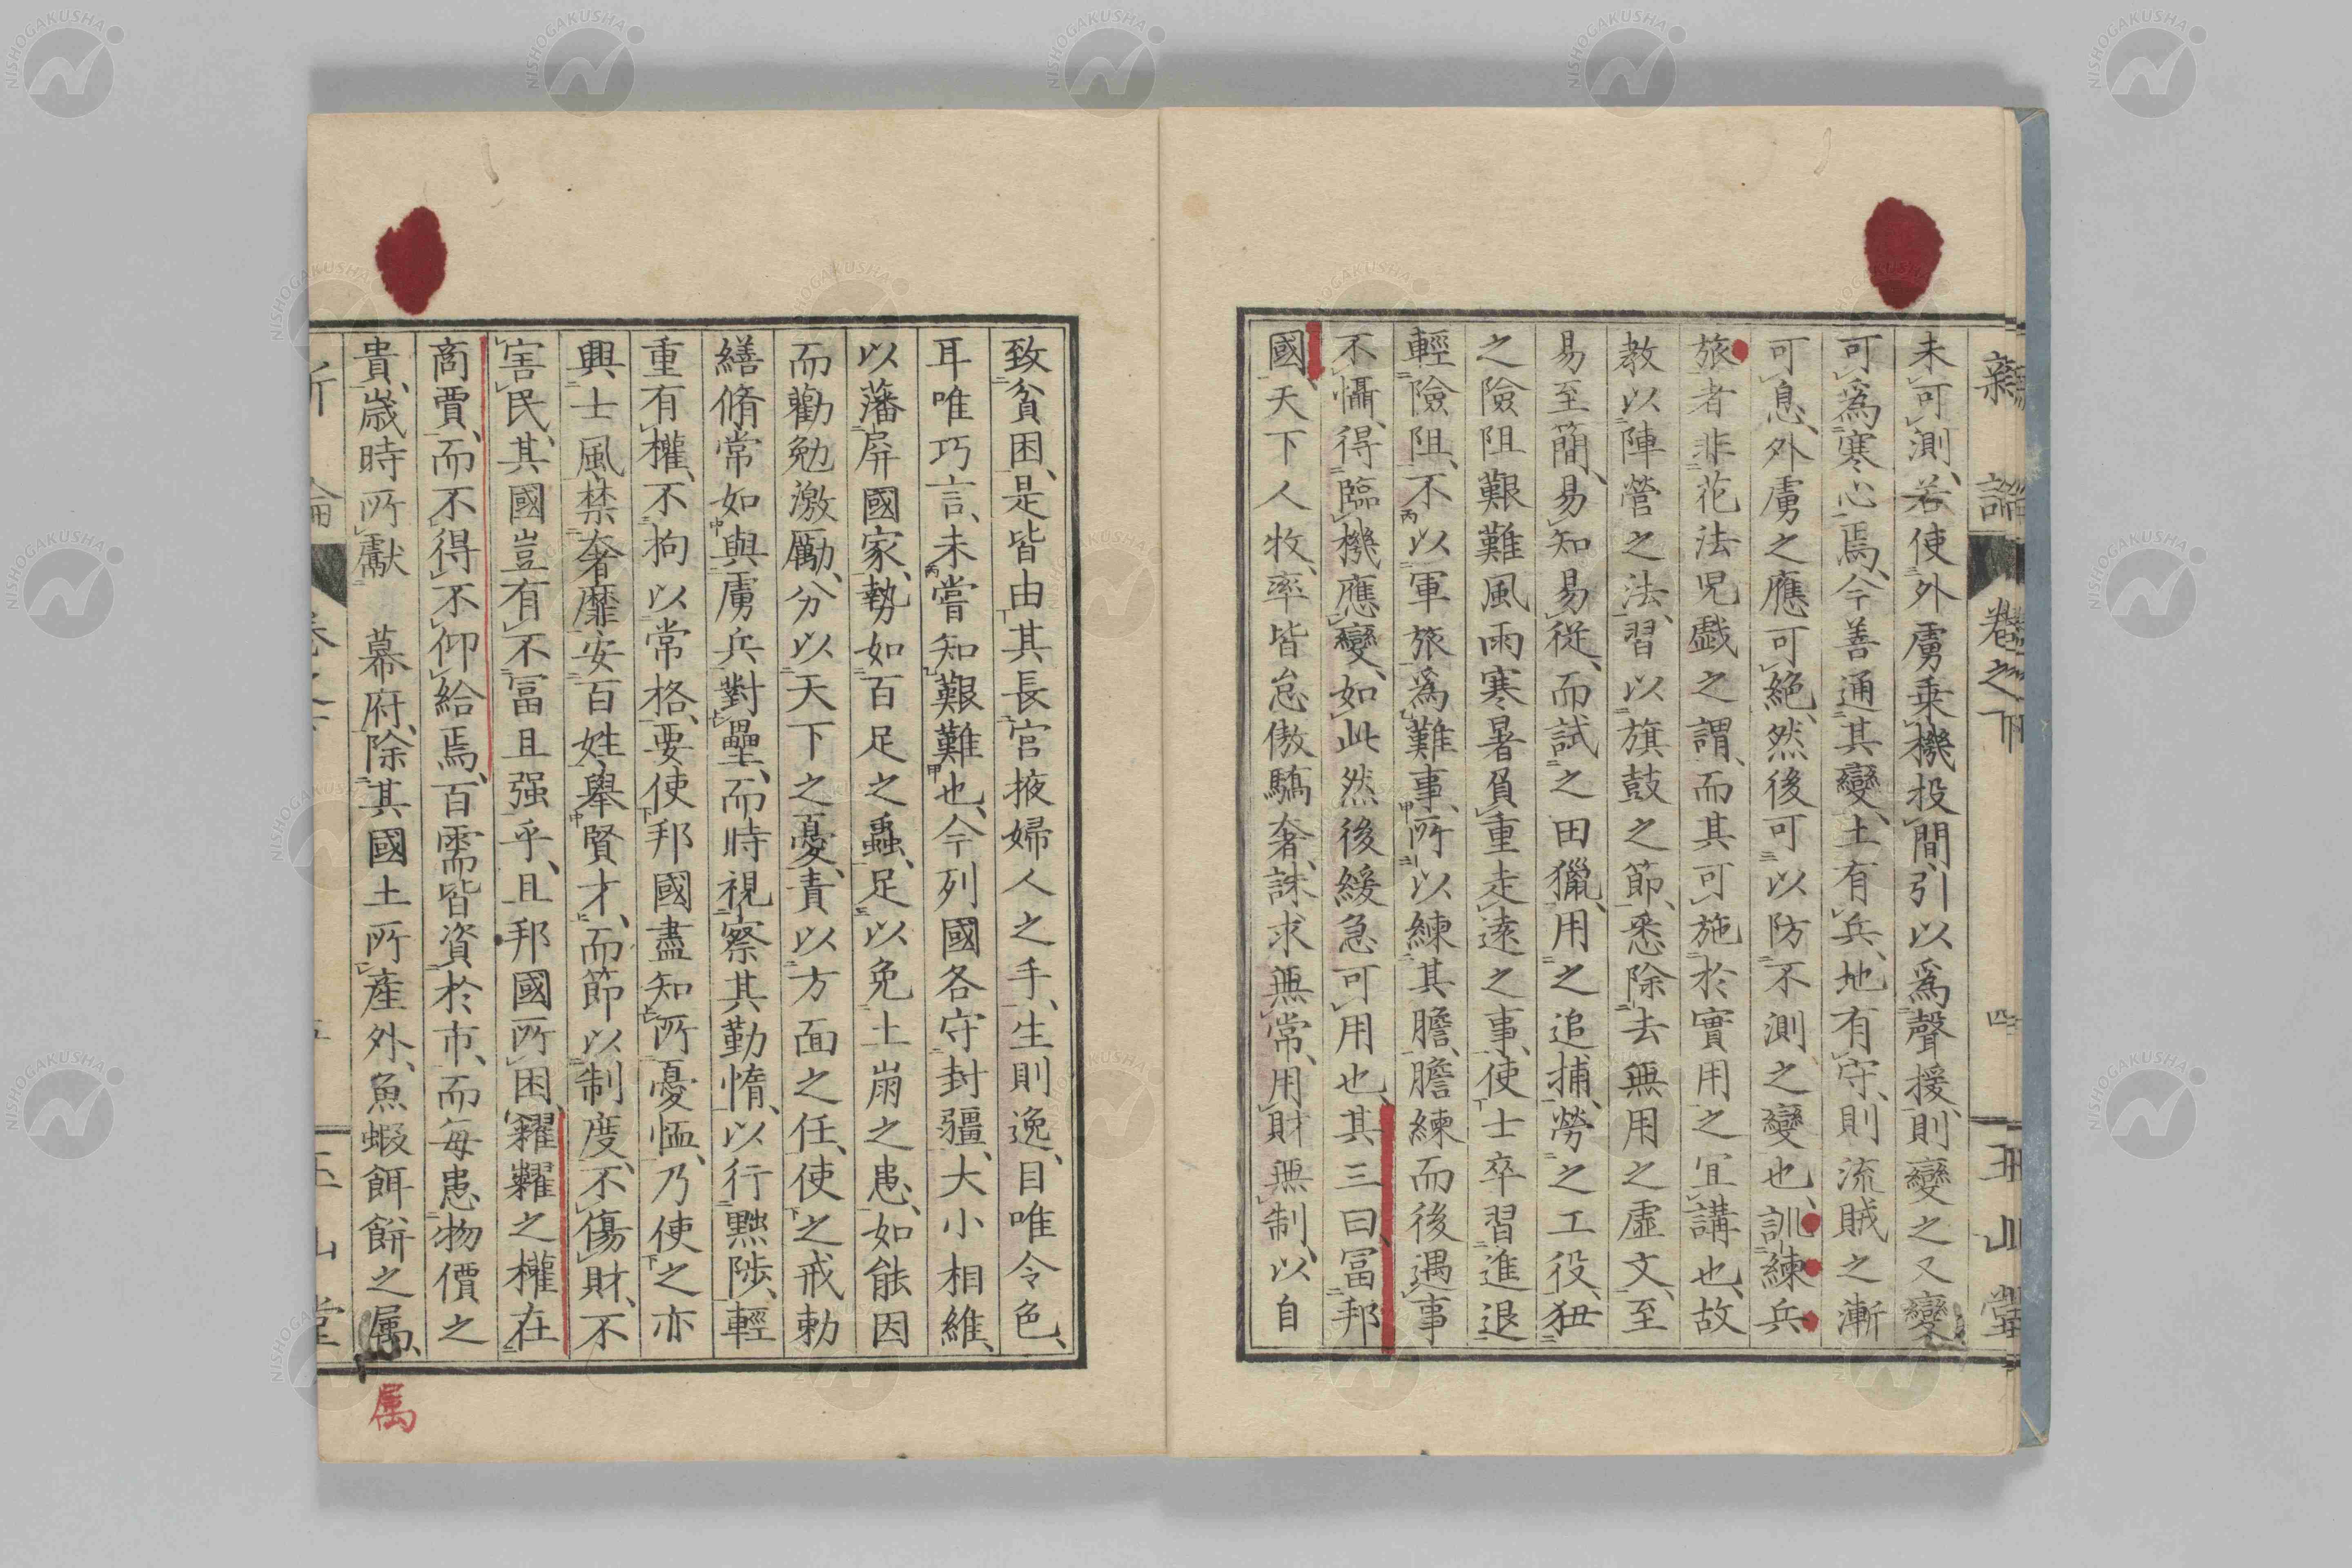 新論 卷之下 四 玉山堂
未可測、若使外虜乗機投間引以爲聲援、則變之又變
可爲寒心焉、今善通其變、土有兵、地有守、則流賊之漸
可息、外虜之應可絶、然後可以防不測之變也、訓練兵
旅者非花法児戯之謂、而其可施於實用之宜講也、故
教以陣營之法、習以旗鼓之節、悉除去無用之虛文、至
易至簡、易知易從、而試之田獵、用之追捕、勞之工役、狃
之險阻艱難風雨寒暑負重走遠之事、使士卒習進退
輕險阻、不以軍旅爲難事、所以練其膽、膽練而後遇事
不懾、得臨機應變、如此然後緩急可用也、其三曰、冨邦
國、天下人牧、率皆怠傲驕奢、誅求無常、用財無制、以自
致貧困、是皆由其長宮掖婦人之手、生則逸、目唯令色、
耳唯巧言、未嘗知艱難也、今列國各守封疆、大小相維、
以藩屏國家、勢如百足之蟲、足以免土崩之患、如能因
而勸勉激勵、分以天下之憂、責以方面之任、使之戒勅
繕脩常如與虜兵對壘、而時視察其勤惰、以行黜陟、輕
重有權、不拘以常格、要使邦國盡知所憂恤、乃使之亦
興士風禁奢靡安百姓舉賢才、而節以制度、不傷財、不
害民、其國豈有不冨且强乎、且邦國所困、糴糶之權在
商賈、而不得不仰給焉、百需皆資於市、而每患物價之
貴、歳時所獻 幕府、除其國土所產外、魚蝦餌餅之属、
属